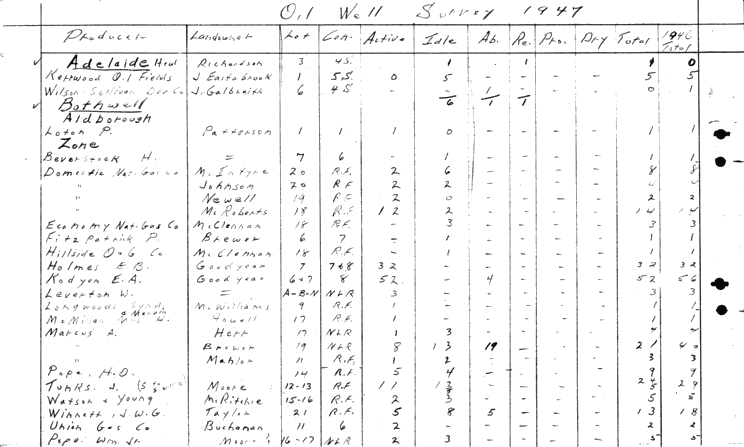 Oil Well Survey 1947
Producer Landowner Lot Con. Active Idle Ab. Re. Pro. Dry Total 1946 Total
Adelaide Head Richardson 3 4S. 1 1 1 0
Kertwood Oil Fields J. Eastabrook 1 5S. 0 5 - - - - 5 5
Wilson-Sullivan Dev Co J. Galbraith 6 4S. - 1 - - - 0 1
6 1 1
Bothwell
Aldborough
Loton P. Patterson 1 1 1 0 - - - - 1 1
Zone
Beverstock H. = 7 6 - 1 - - - - 1 1
Domestic Nat. Gas Co McIntyre 20 R.F. 2 6 - - - - 8 8
" Johnson 20 RF 2 2 - - - - 4 4
" Newell 19 RF 2 0 - - - - 2 2
" McRoberts 18 R.F. 12 2 - - - - 14 14
Economy Nat. Gas Co McClennan 18 RF. - 3 - - - - 3 3
Fitzpatrick P. Brewer 6 7 - 1 - - - - 1 1
Hillside O&G Co McClennan 18 R.F. - 1 - - - - 1 1
Holmes E.B. Goodyear 7 7&8 32 - - - - - 32 32
Kodyen E.A. Goodyear 6&7 8 52 - 4 - - - 52 56
Leverton W. = A-B-N NLR 3 - - - - - 3 3
Longwoods Synd. McWilliams 9 R.F. 1 - - - - - 1 1
Howell 17 R.F. 1 - - - - - 1 1
Marcus A. Herr 17 NLR 1 3 - - - - 4 4
" Brower 19 NLR 8 13 19 - - - 21 40
" Mahlon 11 R.F. 1 2 - - - - 3 3
Pope. H.D. 14 R.F. 5 4 - - - - 9 9
Tunks. J. Moore 12-13 R.F. 11 13 - - - - 24 29
Watson & Young McRitchie 15-16 R.F. 2 3 - - - - 5 5
Winnett, J.W.G. Taylor 21 R.F. 5 8 5 - - - 13 18
Union Gas Co Buchanan 11 6 2 - - - - - 2 2
Pope Wm Jr Moore 16-17 NLR 2 3 - - - - 5 5